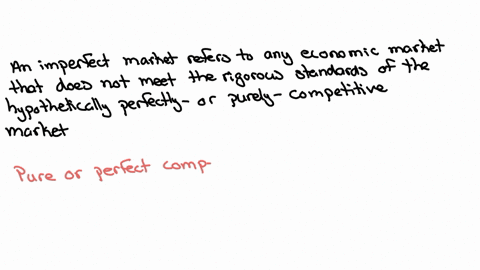 An imperfect market refers to any economic market
that does not meet the rigorous standards of the
hypothetically perfectly- or purely- competitive
market
Pure or perfect comp-